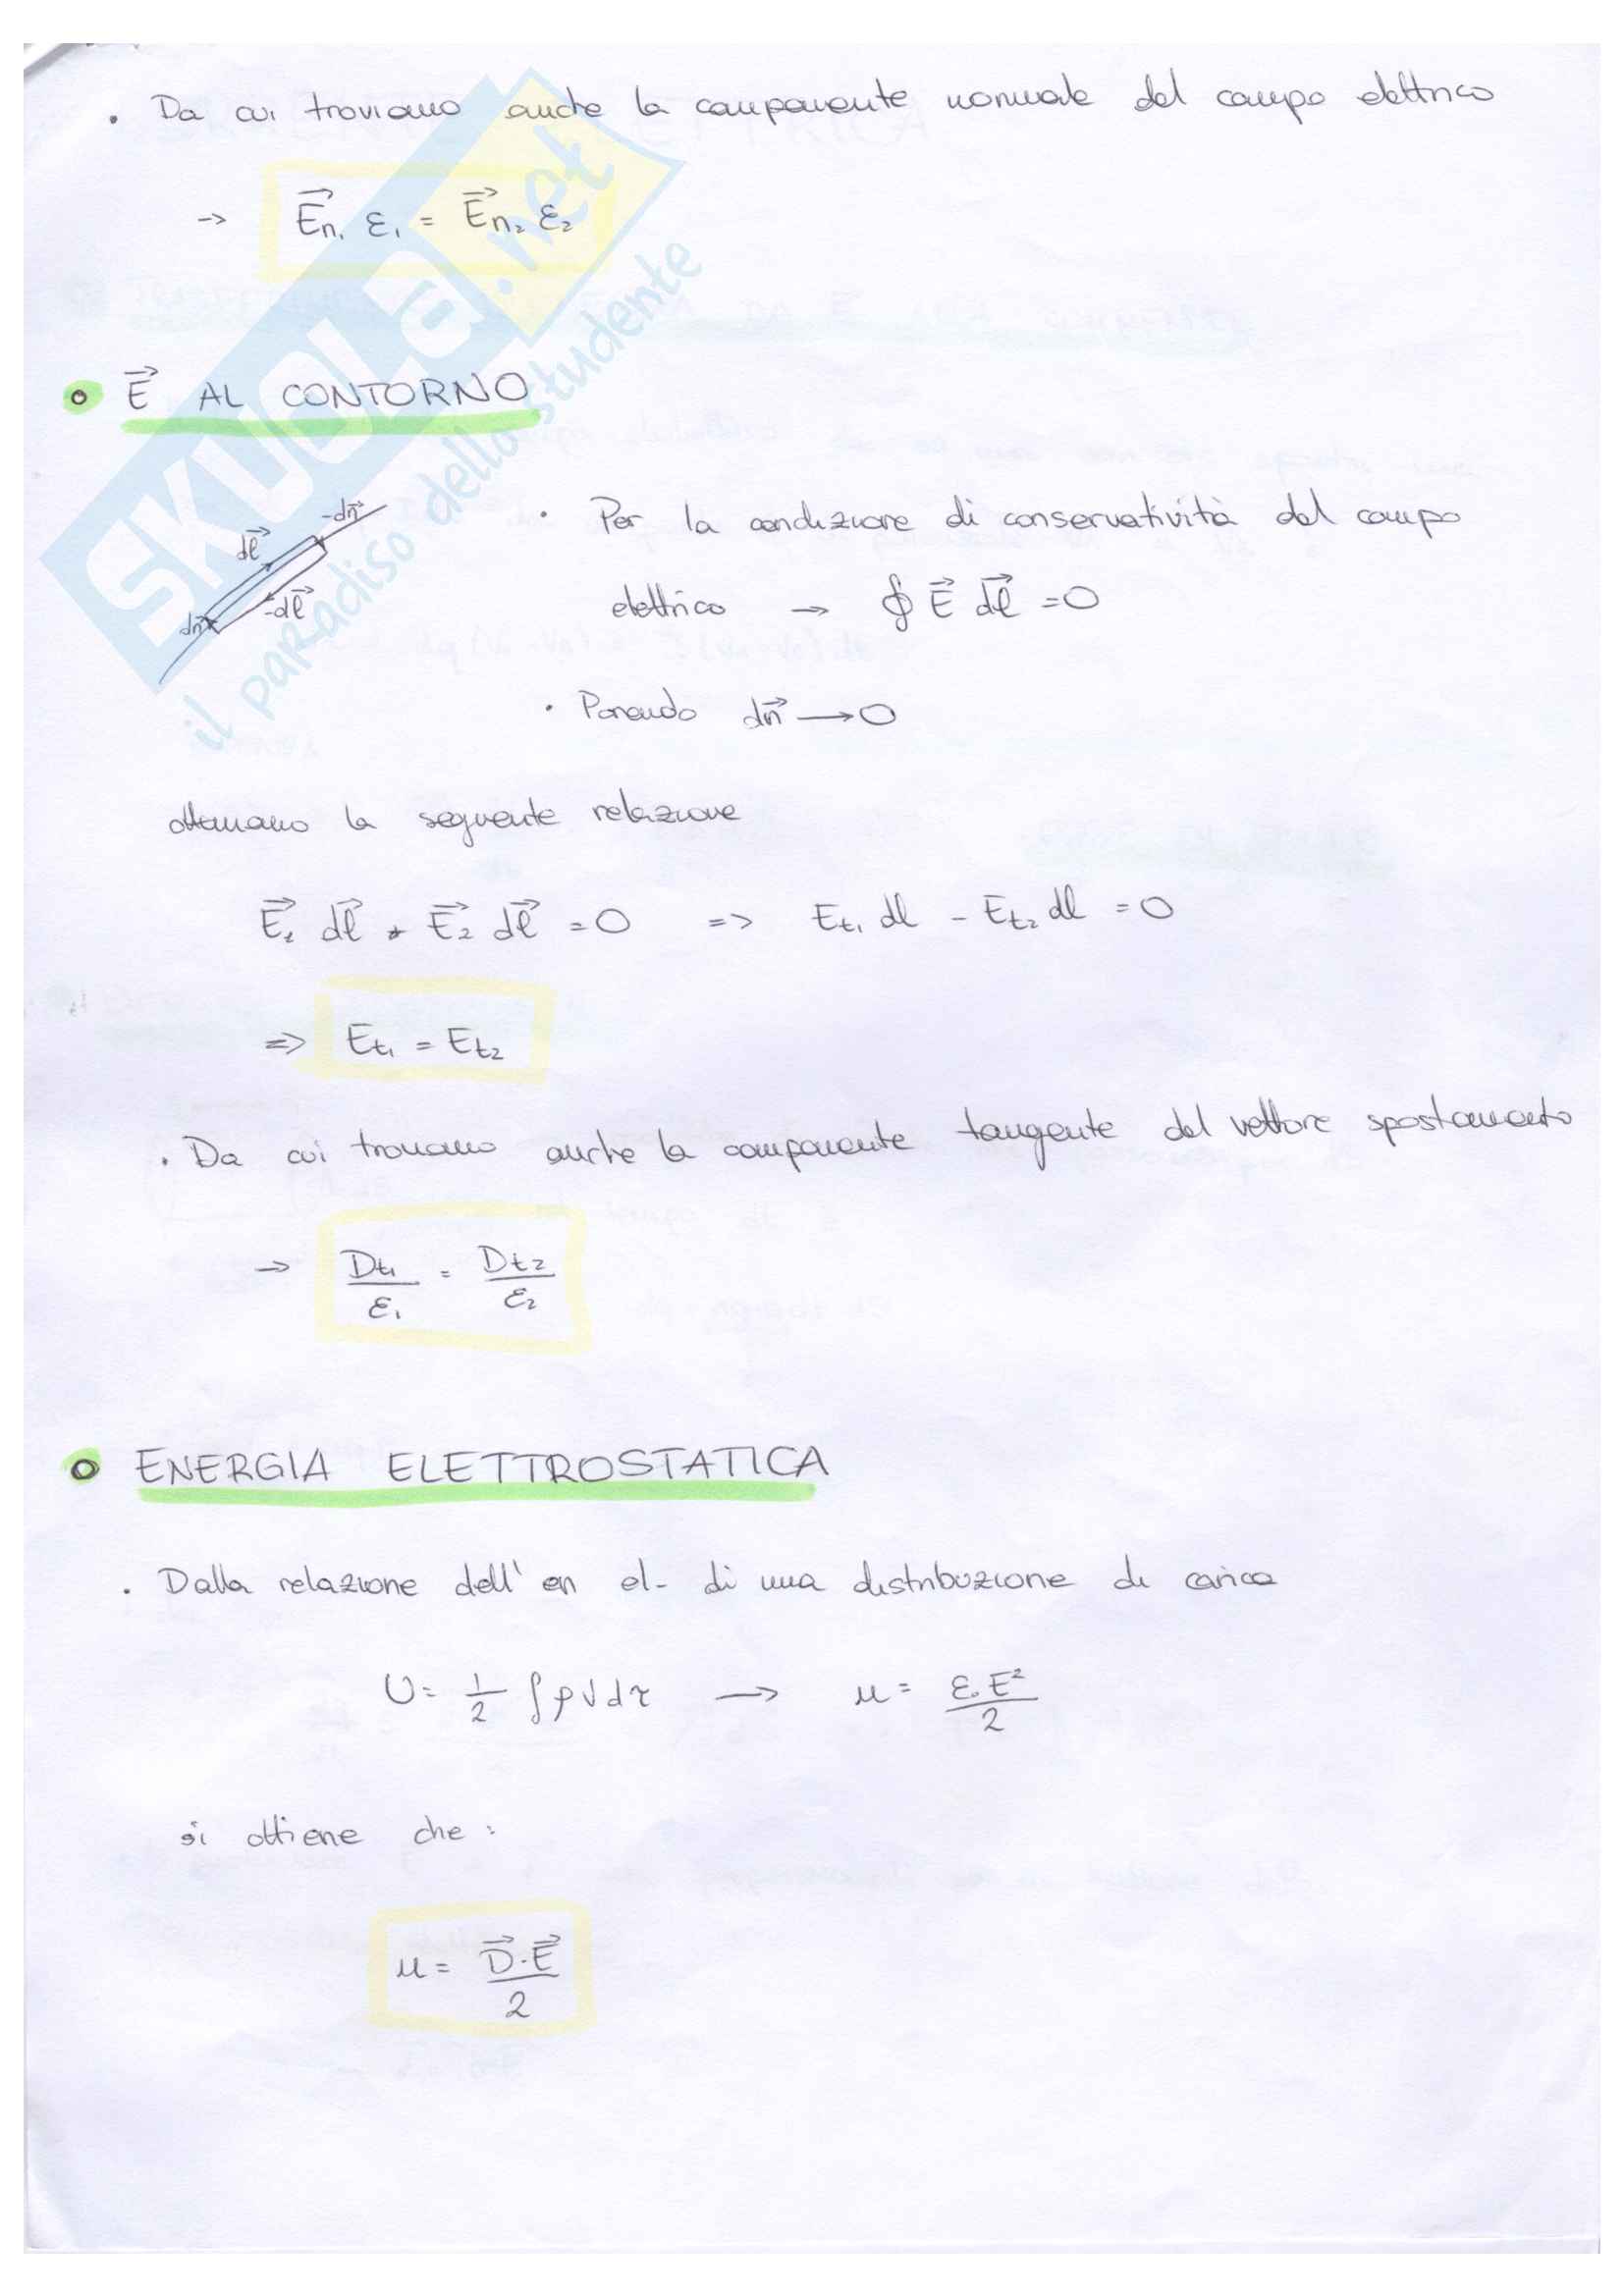 • Da cui troviamo anche la componente normale del campo elettrico
→ E⃗n₁ ε₁ = E⃗n₂ ε₂
• E⃗ AL CONTORNO
dl⃗ -dn⃗
dn⃗ -dl⃗
• Per la condizione di conservatività del campo
elettrico → ∮ E⃗ dl⃗ = 0
• Ponendo dn⃗ → 0
otteniamo la seguente relazione
E⃗₁ dl⃗ + E⃗₂ dl⃗ = 0 => Et₁ dl - Et₂ dl = 0
=> Et₁ = Et₂
• Da cui troviamo anche la componente tangente del vettore spostamento
→ Dt₁/ε₁ = Dt₂/ε₂
• ENERGIA ELETTROSTATICA
• Dalla relazione dell' en el. di una distribuzione di carica
U = 1/2 ∫ρVdτ → u = ε₀E²/2
si ottiene che:
u = D⃗·E⃗/2
SKUOLA.net
il paradiso dello studente